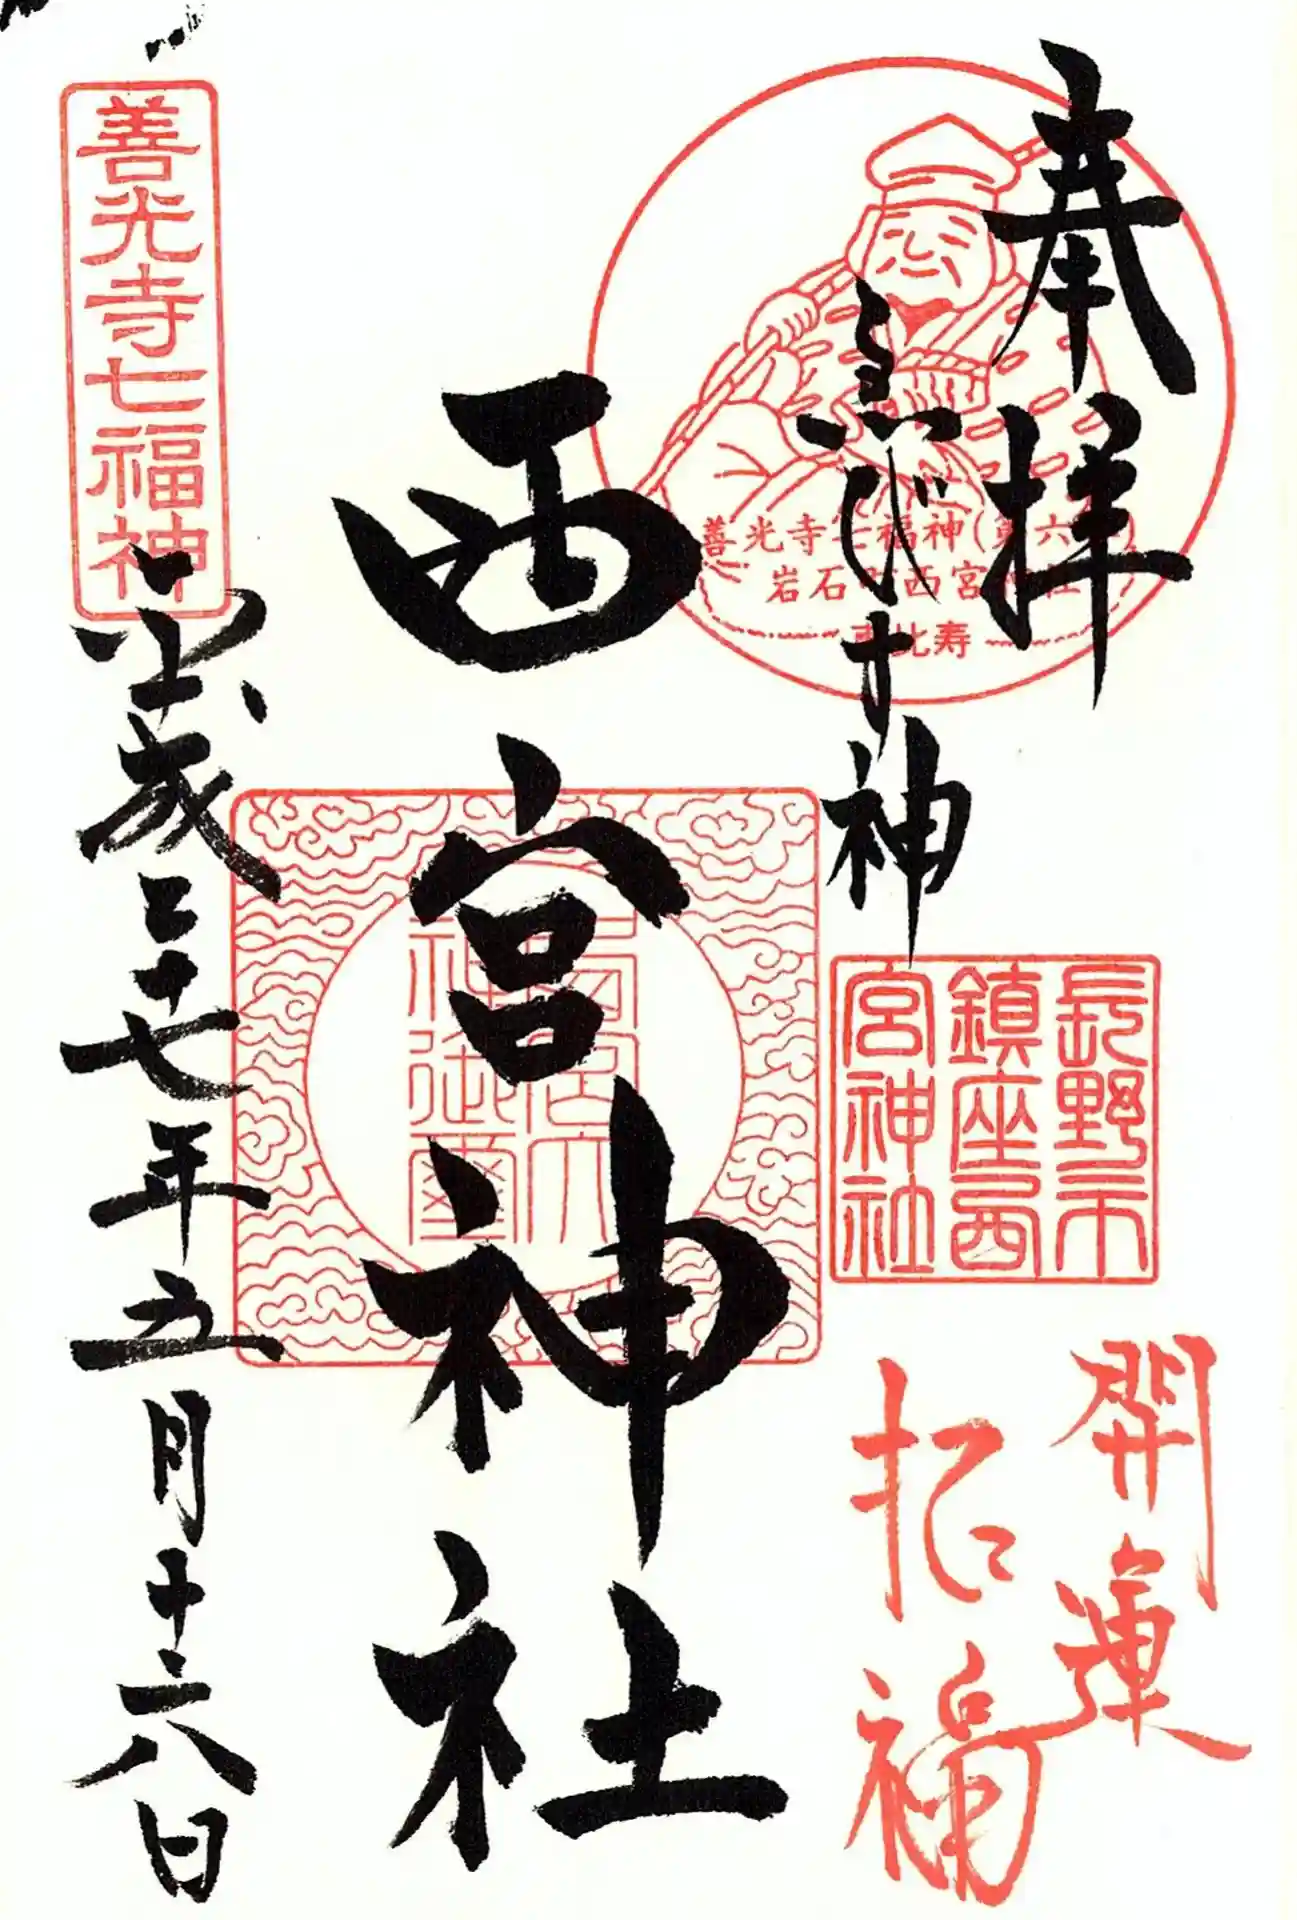 奉拝
善光寺七福神(第六
岩石 西宮神社
恵比寿
ゑびす神
長野市
鎮座西
宮神社
開運
招福
西宮神社
西宮大
神御璽
善光寺七福神
平成二十七年五月十六日